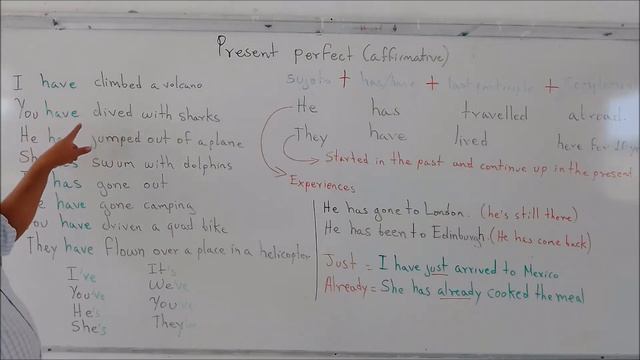 Present perfect (affirmative)
I have climbed a volcano
You have dived with sharks
He jumped out of a plane
swum with dolphins
has gone out
have gone camping
have driven a quad bike
They have flown over a place in a helicopter
I've
You've
He's
She's
It's
We've
You've
They've
sujeto + has/have + last participle +
He has travelled abroad.
They have lived here for
Started in the past and continue up in the present
Experiences
He has gone to London. (he's still there)
He has been to Edinburgh. (He has come back)
Just = I have just arrived to Mexico
Already = She has already cooked the meal